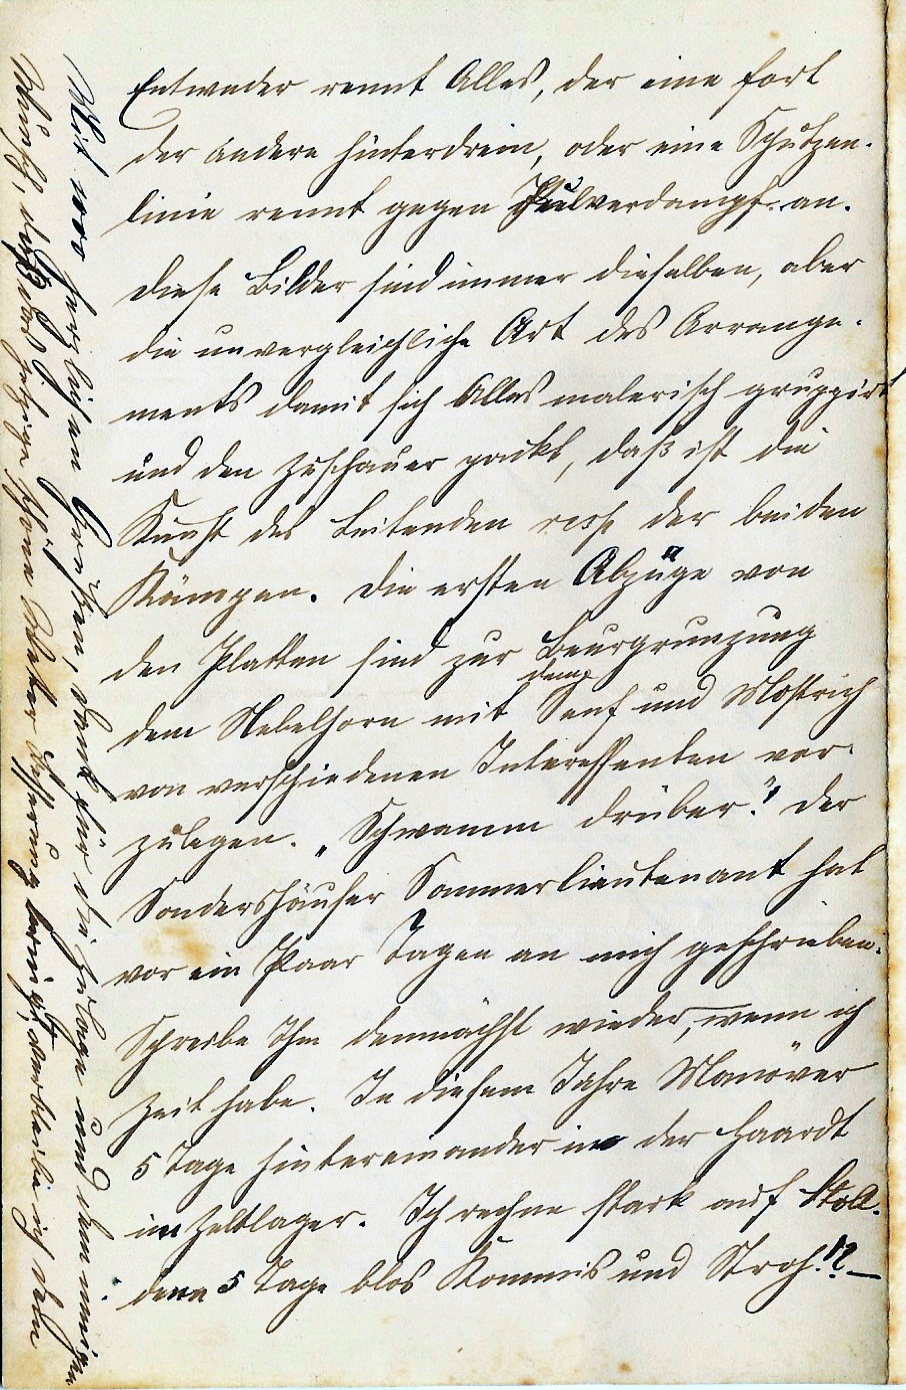 Entweder rennt Alles, der eine fort
der andere hinterdrein, oder eine Schützen-
linie rennt gegen Pulverdampf an.
Diese Bilder sind immer dieselben, aber
die unvergleichliche Art des Arrange-
ments damit sich Alles malerisch gruppirt
und den Zuschauer packt, daß ist die
Kunst des Leitenden resp der beiden
Kämpen. Die ersten Abzüge von
den Platten sind zur Beurgrunzung
dem Nebelhorn mit dem Senf und Mostrich
von verschiedenen Interessenten vor-
zulegen. „Schwamm drüber." Der
Sondershäuser Sommerlieutenant hat
vor ein Paar Tagen an mich geschrieben.
Schreibe Ihm demnächst wieder, wenn ich
Zeit habe. In diesem Jahre Manöver
5 Tage hintereinander in der Haardt
im Zeltlager. Ich rechne stark auf Stoll.
denn 5 Tage blos Kommis und Stroh!?—
Mit herzlichen Grüßen, Dank für die und den innigen
Wunsch, daß schöne Wetter bringt, verbleibe ich Dein